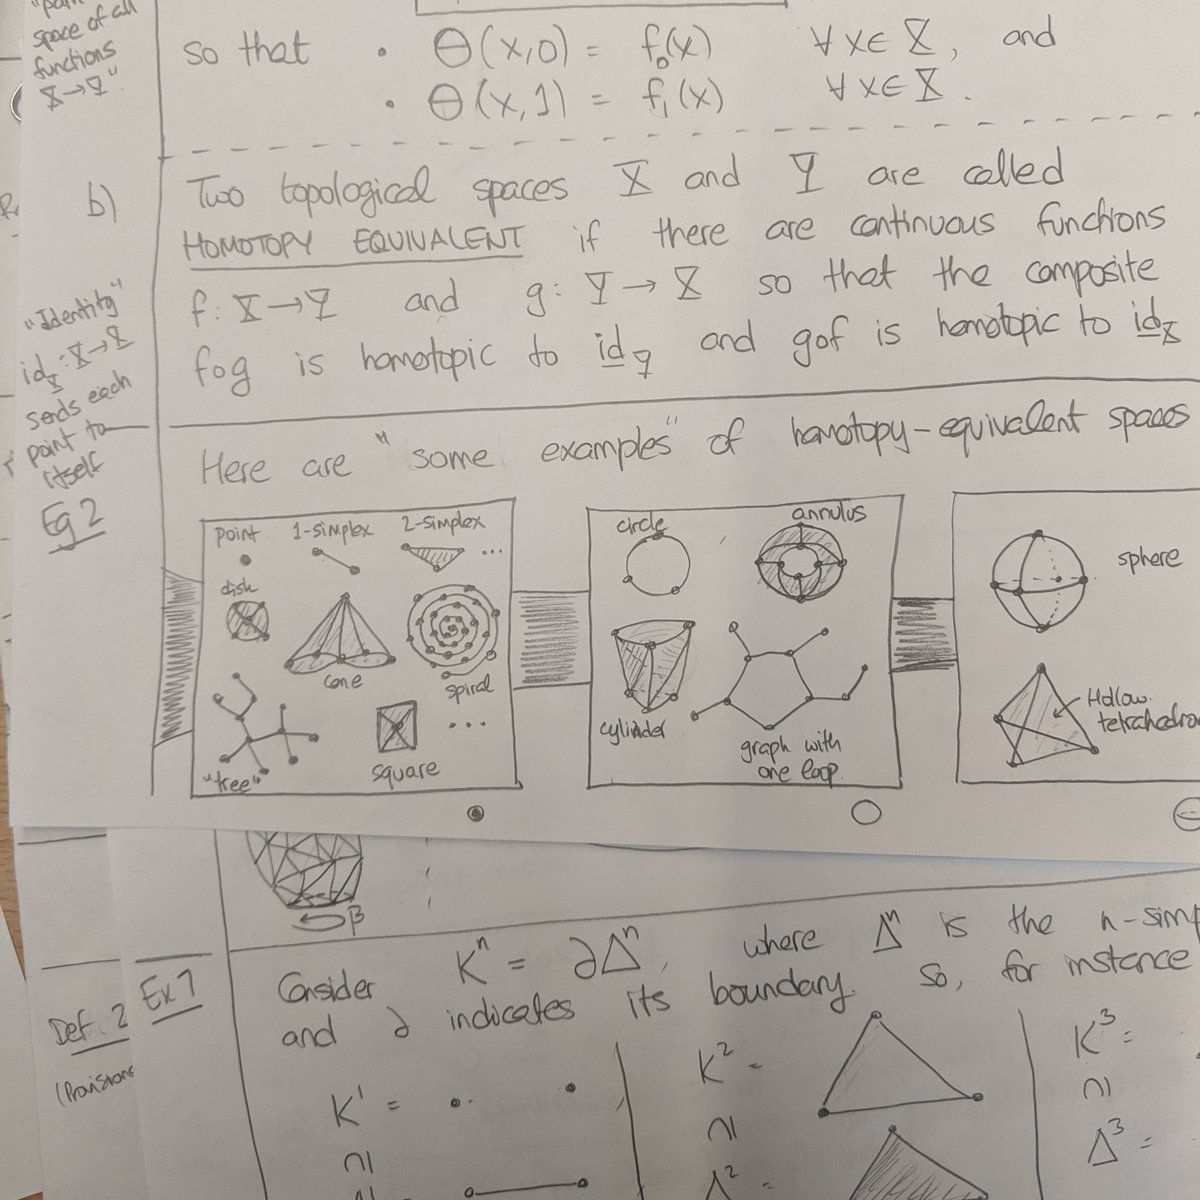 space of all
functions
X→Y".
so that • Θ(x,0) = f₀(x) ∀ x∈X, and
• Θ(x,1) = f₁(x) ∀ x∈X.
b)
Two topological spaces X and Y are called
HOMOTOPY EQUIVALENT if there are continuous functions
f: X→Y and g: Y→X so that the composite
fog is homotopic to id_Y and gof is homotopic to id_X
"Identity"
id_X: X→X
sends each
point to
itself
Eg 2
Here are "some examples" of homotopy-equivalent spaces
point 1-simplex 2-simplex ...
disk
cone
spiral
"tree"
square ....
circle annulus
cylinder
graph with
one loop.
sphere
Hollow
β
Def. 2
Ex 7
Consider Kⁿ = ∂Δⁿ, where Δⁿ is the
and ∂ indicates its boundary. So, for instance
K¹ =
∩I
K² =
∩I
Δ² =
K³ =
∩I
Δ³ =